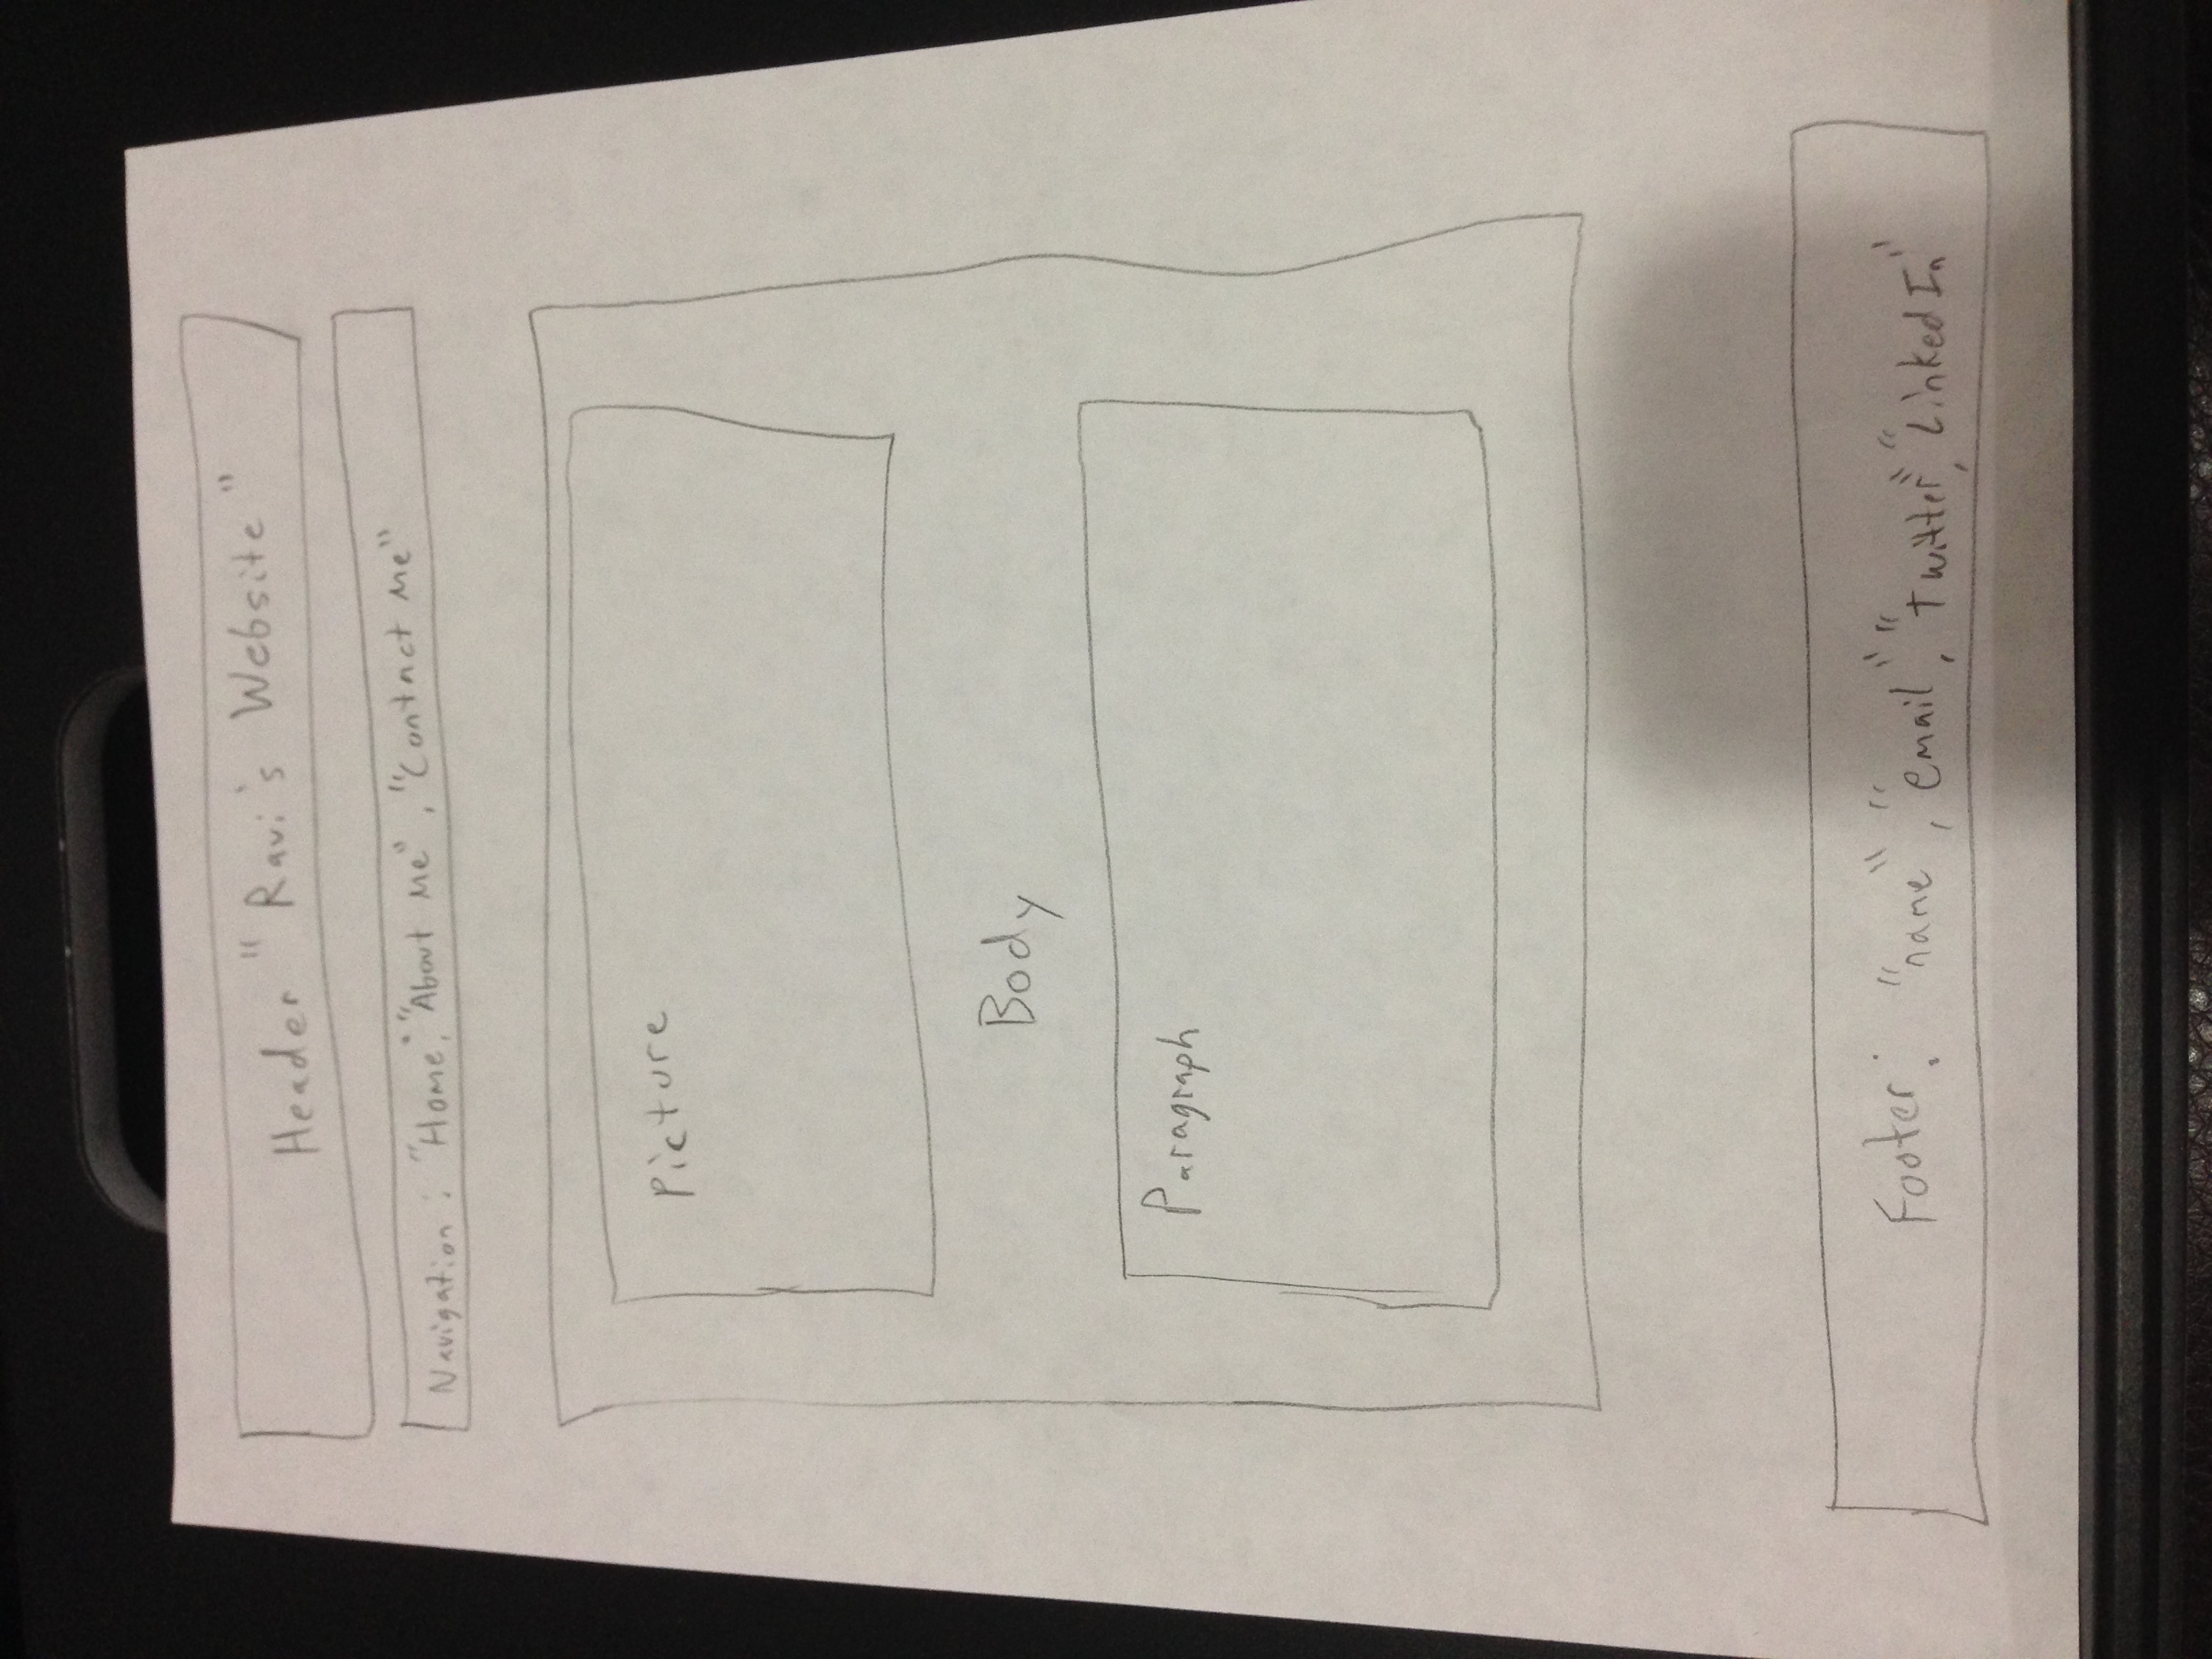 Header "Ravi's Website"
Navigation: "Home", "About Me", "Contact Me"
Picture
Body
Paragraph
Footer: "name", "email", "Twitter", "LinkedIn"